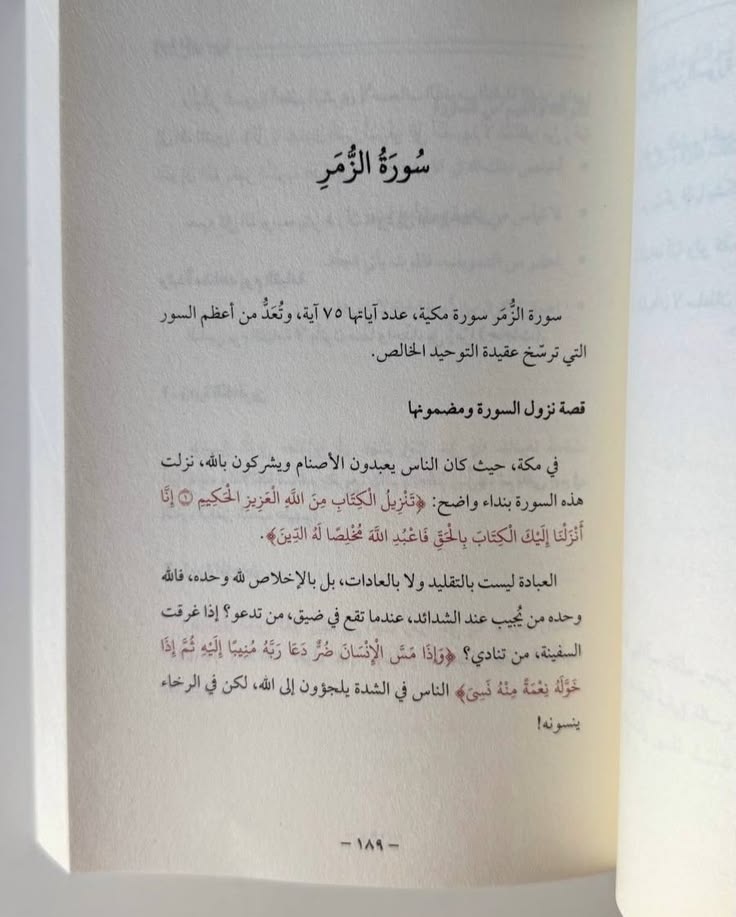 سُورَةُ الزُّمَرِ
سورة الزُّمَر سورة مكية، عدد آياتها ٧٥ آية، وتُعَدُّ من أعظم السور
التي ترسّخ عقيدة التوحيد الخالص.
قصة نزول السورة ومضمونها
في مكة، حيث كان الناس يعبدون الأصنام ويشركون بالله، نزلت
هذه السورة بنداء واضح: ﴿تَنْزِيلُ الْكِتَابِ مِنَ اللَّهِ الْعَزِيزِ الْحَكِيمِ ۝١ إِنَّا
أَنْزَلْنَا إِلَيْكَ الْكِتَابَ بِالْحَقِّ فَاعْبُدِ اللَّهَ مُخْلِصًا لَهُ الدِّينَ﴾.
العبادة ليست بالتقليد ولا بالعادات، بل بالإخلاص لله وحده، فالله
وحده من يُجيب عند الشدائد، عندما تقع في ضيق، من تدعو؟ إذا غرقت
السفينة، من تنادي؟ ﴿وَإِذَا مَسَّ الْإِنْسَانَ ضُرٌّ دَعَا رَبَّهُ مُنِيبًا إِلَيْهِ ثُمَّ إِذَا
خَوَّلَهُ نِعْمَةً مِنْهُ نَسِيَ﴾ الناس في الشدة يلجؤون إلى الله، لكن في الرخاء
ينسونه!
– ١٨٩ –